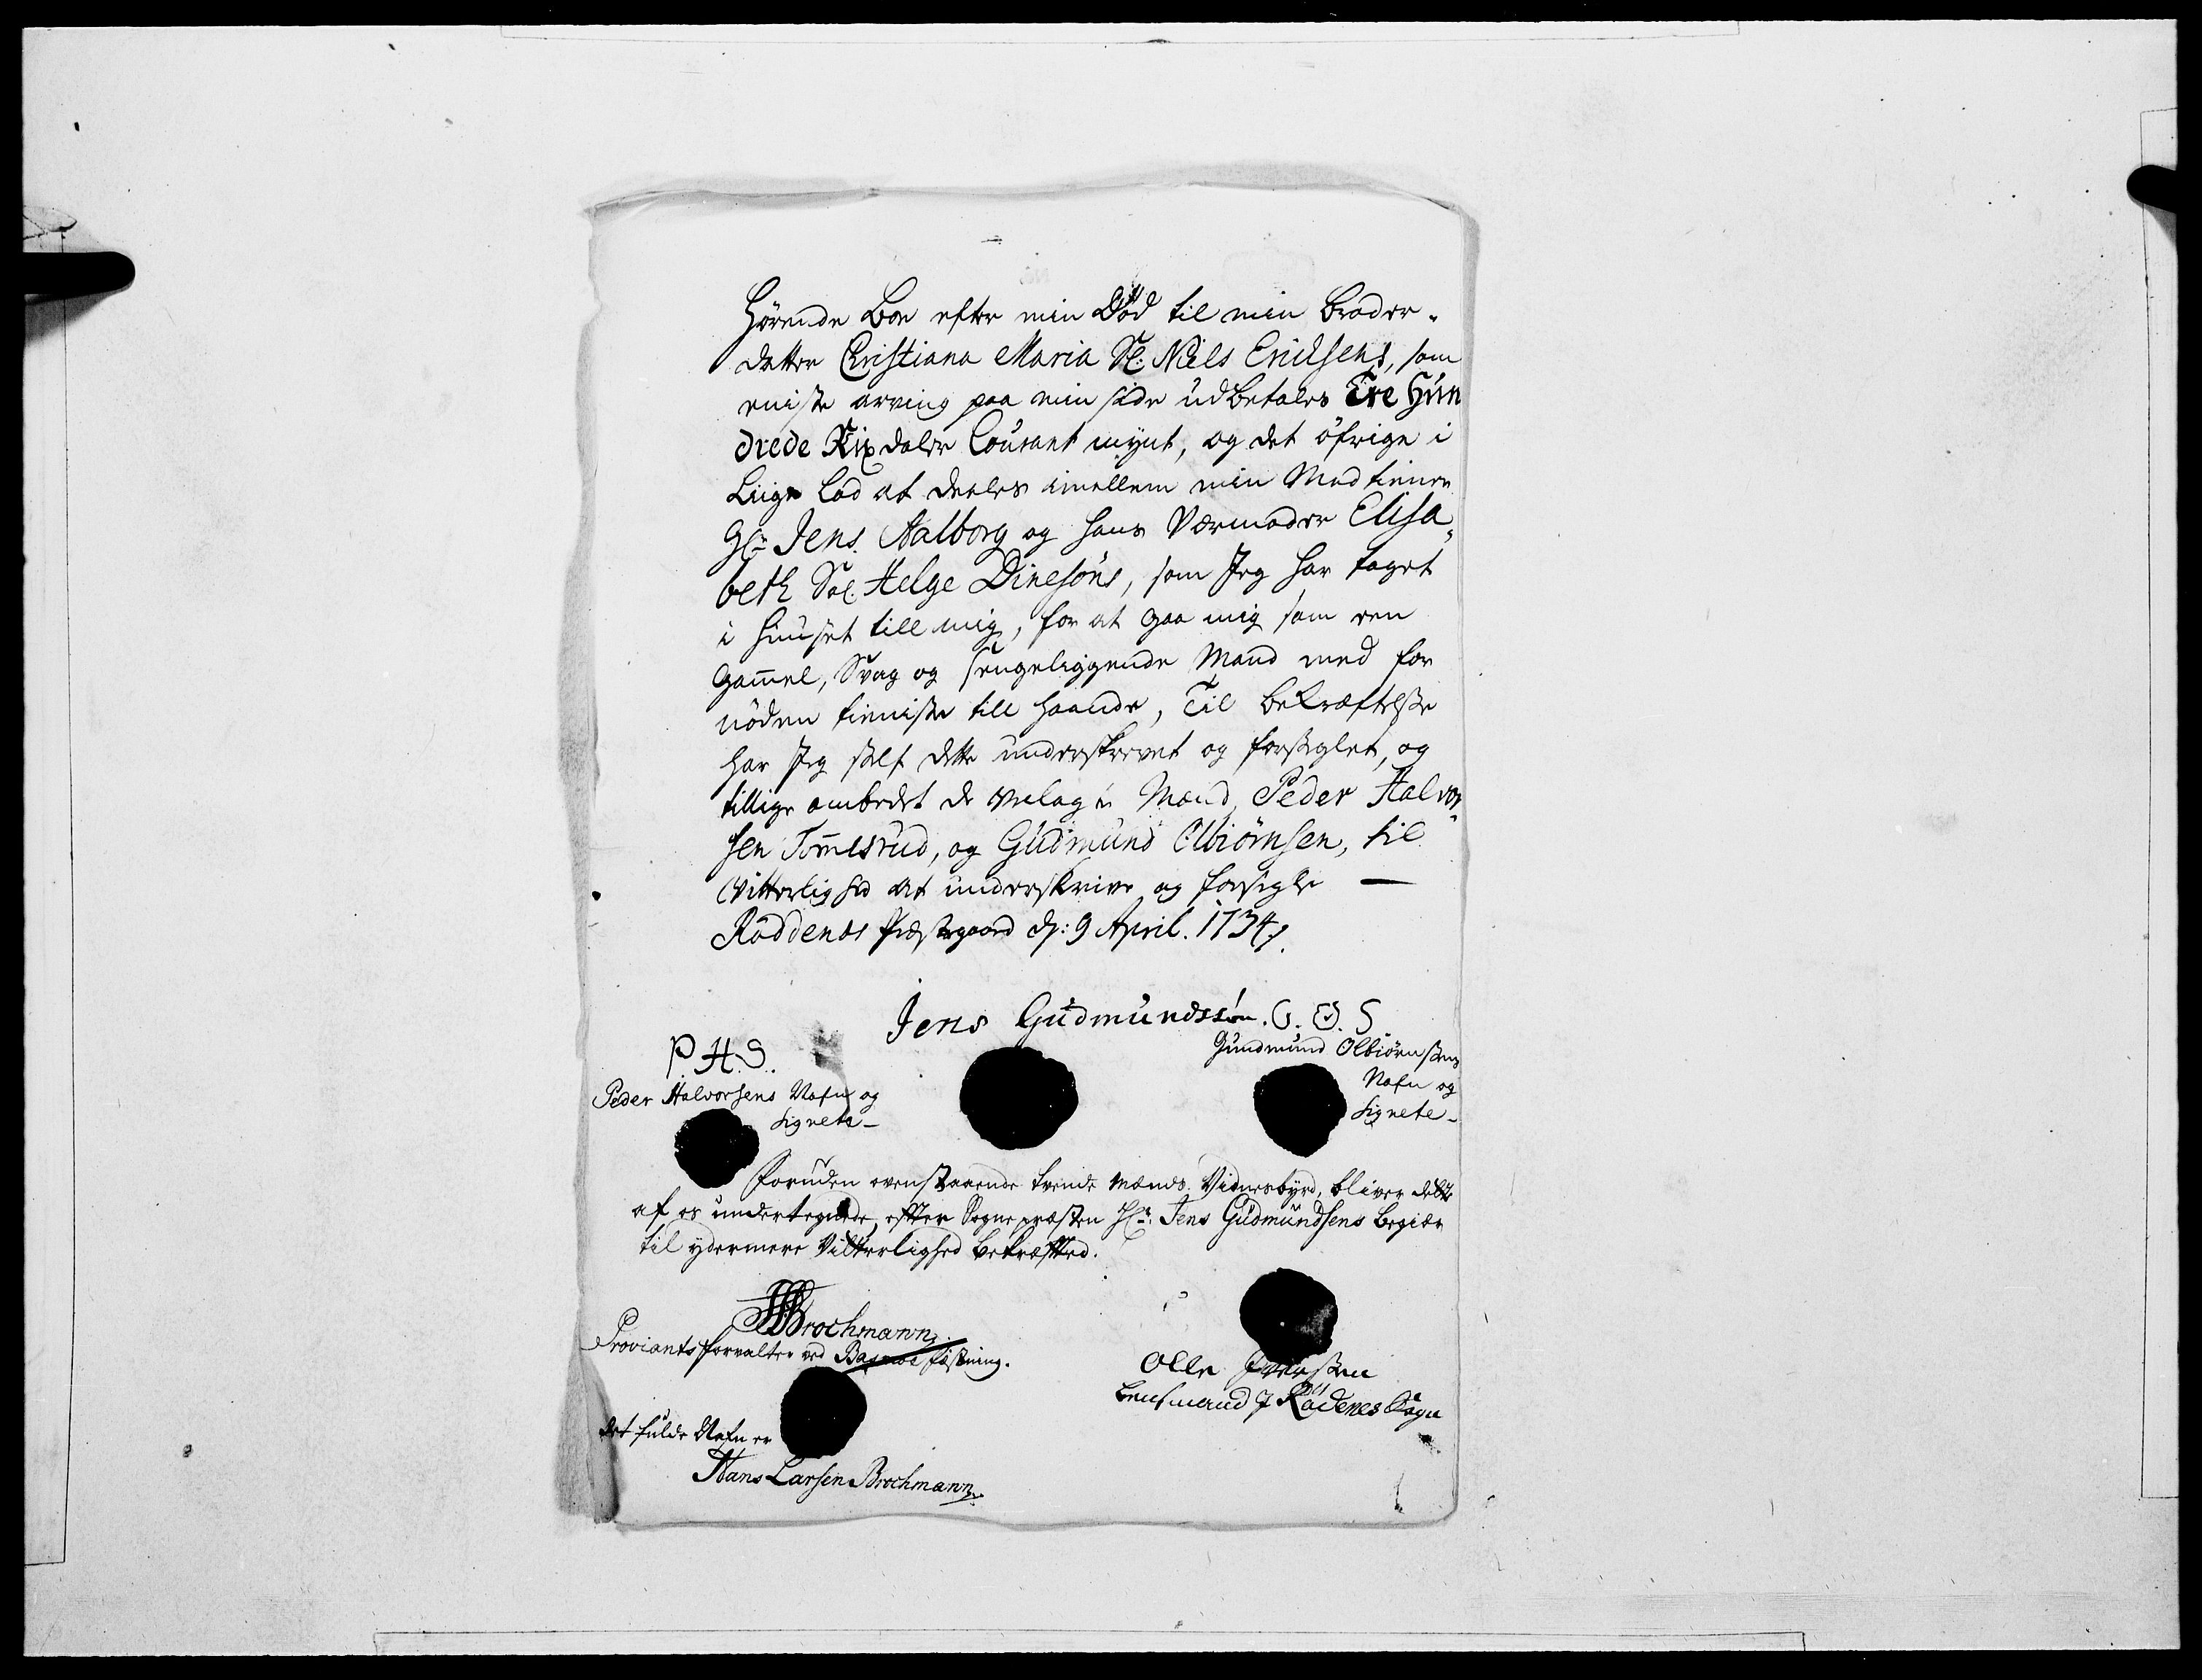 hørende Boe efter min Død til min Broder-
datter Christiana Maria Sl: Niels Ericksens, som
eniste arving paa min side udbetales Tre Hun
drede Rixdaler Courant mynt, og det øfrige i
Liige Lod at deeles imellem min Medtiener
Hr: Jens Aalborg og hansVærmoder Elisa-
beth Sal. Helge Dinesøns, som Jeg har taget
i huuset till mig, for at gaa mig som een
gammel, Svag og sengeliggende Mand med for
nøden tieniste till haande, Til bekræftelse
har Jeg self dette underskrevet og forseglet, og
tillige ombedet de Mænd, Peder Halvor-
sen Tommesrud, og Gudmund Olbiørnsen, til
Vitterlighed at underskrive og forsegle —
Røddenes Præstegaard d: 9 April. 1734.
Jens Gudmundssøn. G. O. S
P. H. S.
Gundmund Olbiørnsens
Nafn og
Signete-
Peder Halvorsens Nafn og
Signete-
Foruden ovenstaaende tvende Mænds Vidnesbyrd, bliver dette
af os undertegnede, efter Sognepræsten Hr: Jens Gudmundsens begiær
til ydermere Vitterlighed bekræfted.
HLBrochmann
Proviantsforvalter ved Basmoe fæstning.
Olle Iversen
Lensmand I Rødenes Sogn
det fulde Nafn er
Hans Larsen Brochmann